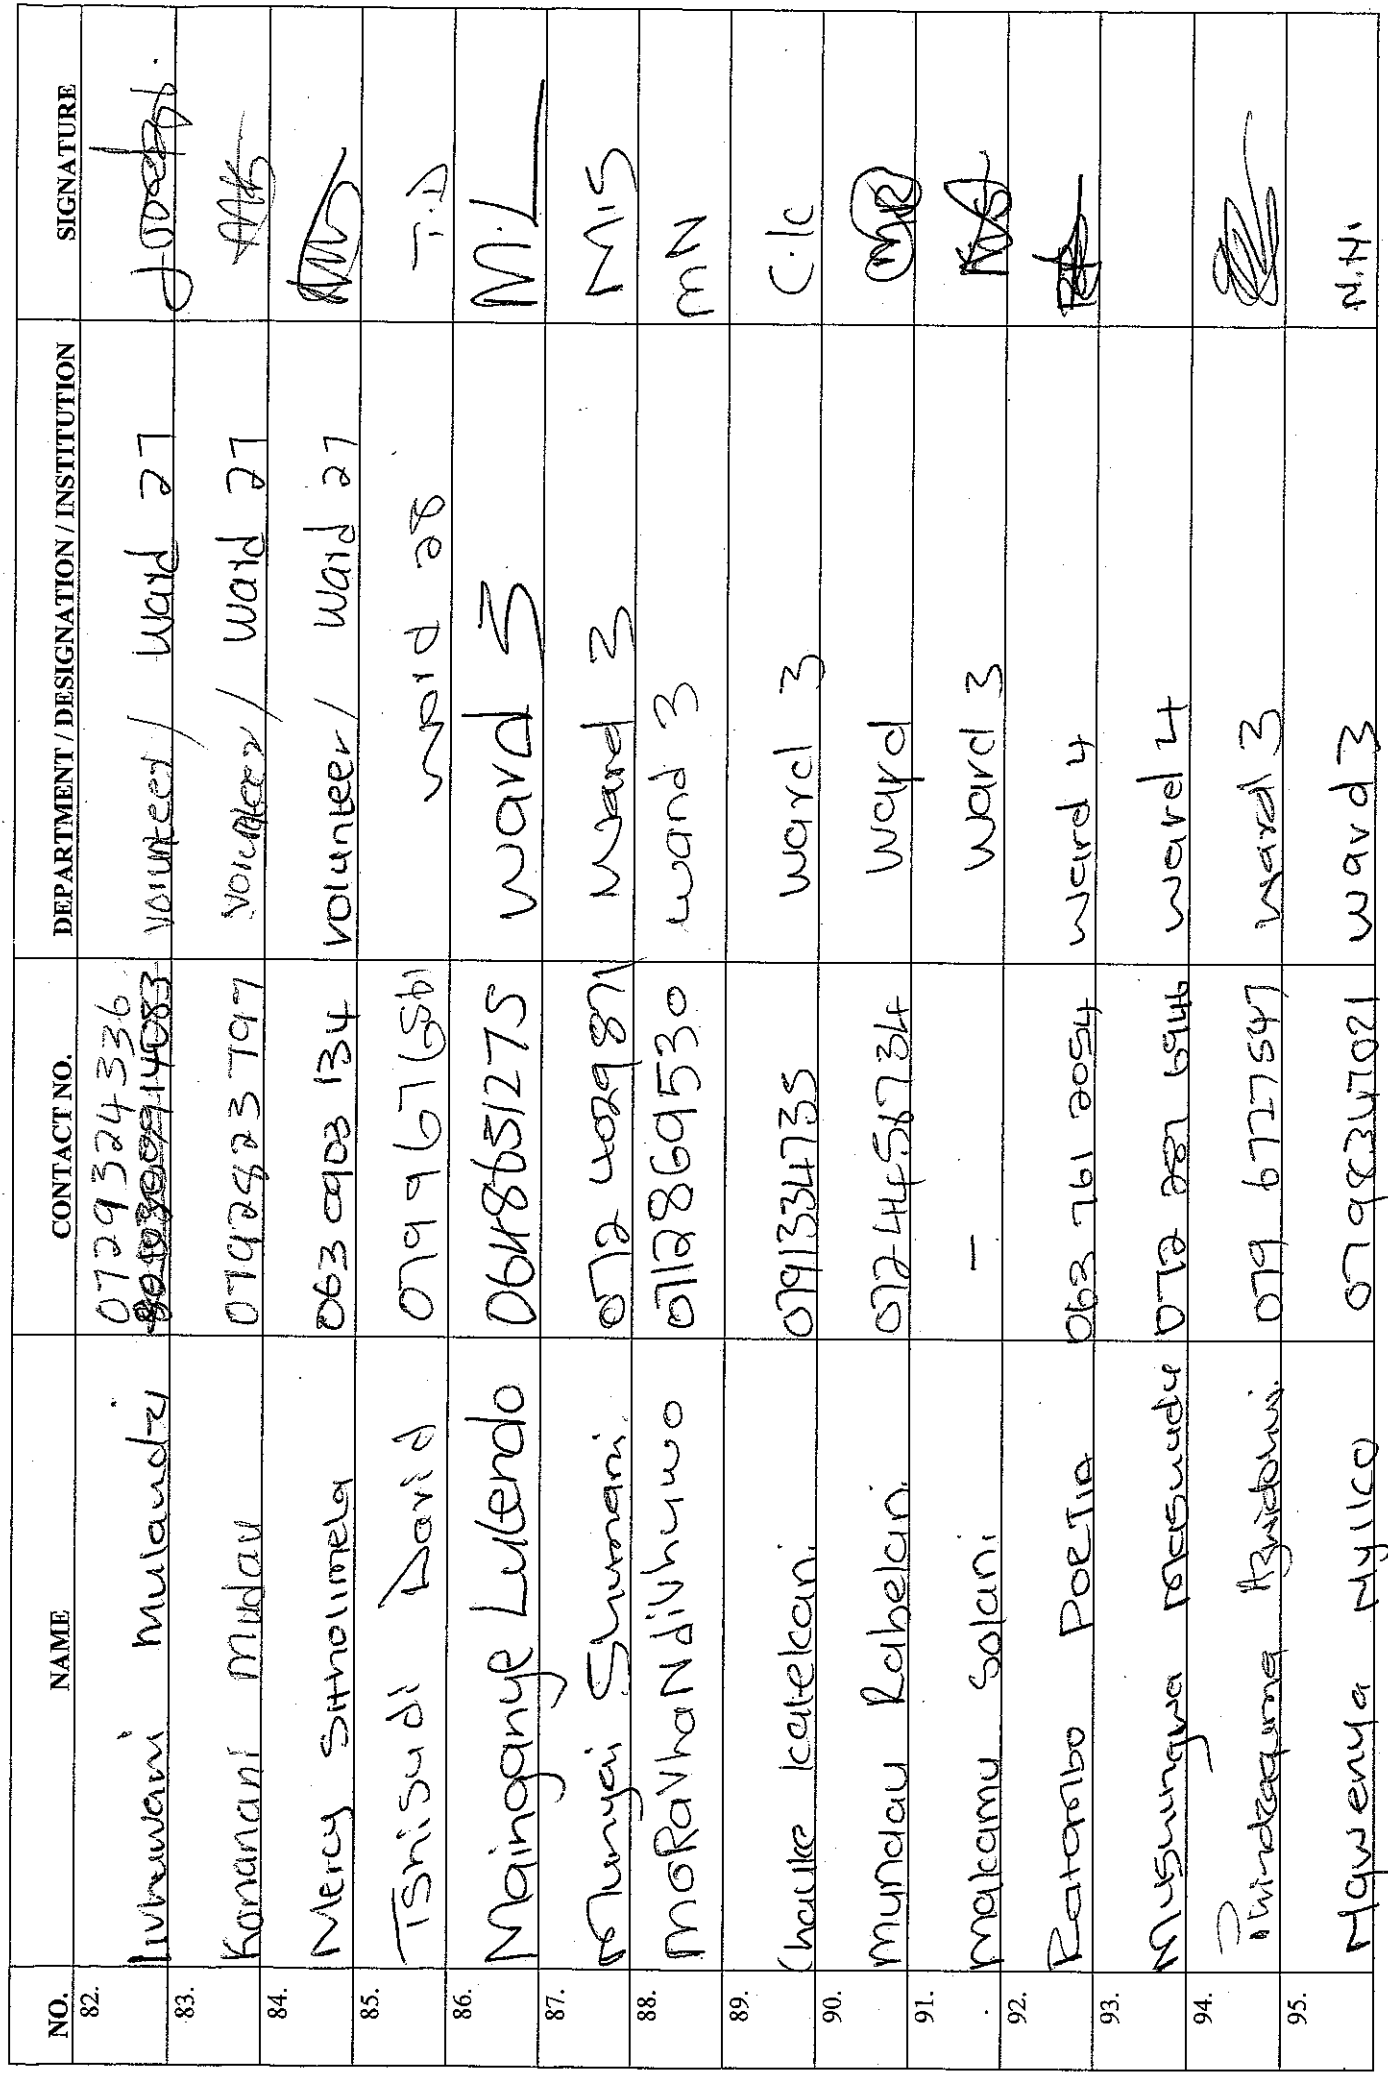 NO. NAME CONTACT NO. DEPARTMENT / DESIGNATION / INSTITUTION SIGNATURE
82. Livhuwani Mulaudzi 0729324336 volunteer / Ward 27
83. Konanani Mudau 0792823797 volunteer / Ward 27
84. Mercy Sitholimela 063 0903 134 volunteer / Ward 27
85. Tshisudi David ward 28 T.D
86. Mainganye Lutendo 0648651275 ward 3 M.L
87. Munyai Shumani. 072 4029871 Ward 3 M.S
88. MoRaVhaNdiVhuwo 0712869530 ward 3 MN
89. Chauke Icatelcani. 0791334735 ward 3 C.Ic
90. Mundau Rabelani. 0724456734 Ward MR
91. Makamu Solani. – Ward 3
92. Ratombo PORTIA 063 761 2054 ward 4
93. Mushungwa Masindi 072 287 6946 ward 4
94. Azwidohwi. 079 6727547 ward 3
95. Mawenya Nyiko 0798347021 ward 3 N.H.